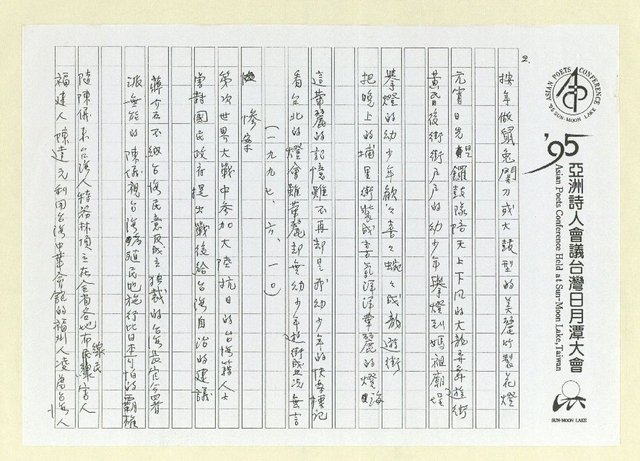 2.
按年做鼠兔關刀或大鼓型的美麗竹製花燈
元宵日
鑼鼓隊
天上下凡的大龍
遊街
黃昏後街街戶戶的幼少年舉燈到媽祖廟埕
舉燈的幼少年歡々喜々蜿々成龍遊街
把晚上的埔里街裝成喜氣洋洋華麗的燈海
這華麗的記憶難不再却是我幼少年的快樂標記
看台北的燈會雖華麗却無幼少年遊街盛況無言
(一九九七、六、一〇)
慘案
第次世界大戰中參加大陸抗日的台灣籍人士
曾對國民政府提出戰後給台灣自治的建議
蔣介石不納台灣民意反成立獨裁的台灣長官公署
派無能的陳儀視台灣為殖民地施行比日本可怕的霸權
隨陳儀來台灣人特務林頂立在全省各地布
線民
害人
福建人陳達元利用台灣中華會館的福州人凌辱台灣人
ASIAN POETS CONFERENCE
'95 SUN-MOON LAKE
'95
亞洲詩人會議台灣日月潭大會
Asian Poets Conference Held at Sun-Moon Lake, Taiwan
SUN-MOON LAKE